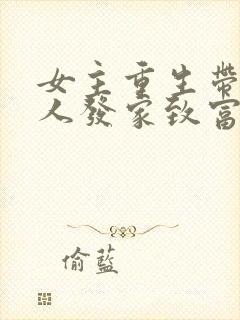 女主重生带
人發家致富
偷藍